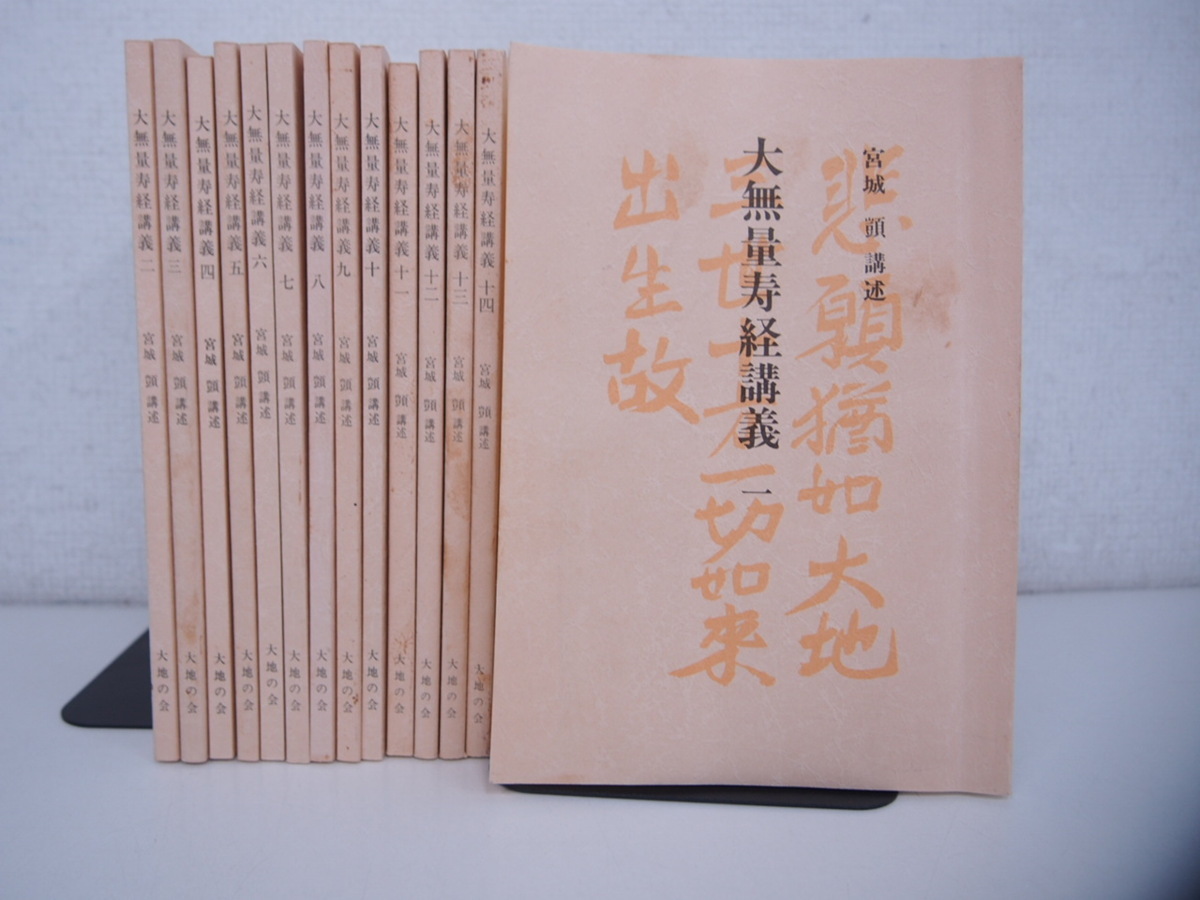 宮城 顗 講述
大無量寿経講義 一
悲願猶如大地
三世十方一切如來
出生故
大無量寿経講義 二 宮城 顗 講述 大地の会
大無量寿経講義 三 宮城 顗 講述 大地の会
大無量寿経講義 四 宮城 顗 講述 大地の会
大無量寿経講義 五 宮城 顗 講述 大地の会
大無量寿経講義 六 宮城 顗 講述 大地の会
大無量寿経講義 七 宮城 顗 講述 大地の会
大無量寿経講義 八 宮城 顗 講述 大地の会
大無量寿経講義 九 宮城 顗 講述 大地の会
大無量寿経講義 十 宮城 顗 講述 大地の会
大無量寿経講義 十一 宮城 顗 講述 大地の会
大無量寿経講義 十二 宮城 顗 講述 大地の会
大無量寿経講義 十三 宮城 顗 講述 大地の会
大無量寿経講義 十四 宮城 顗 講述 大地の会